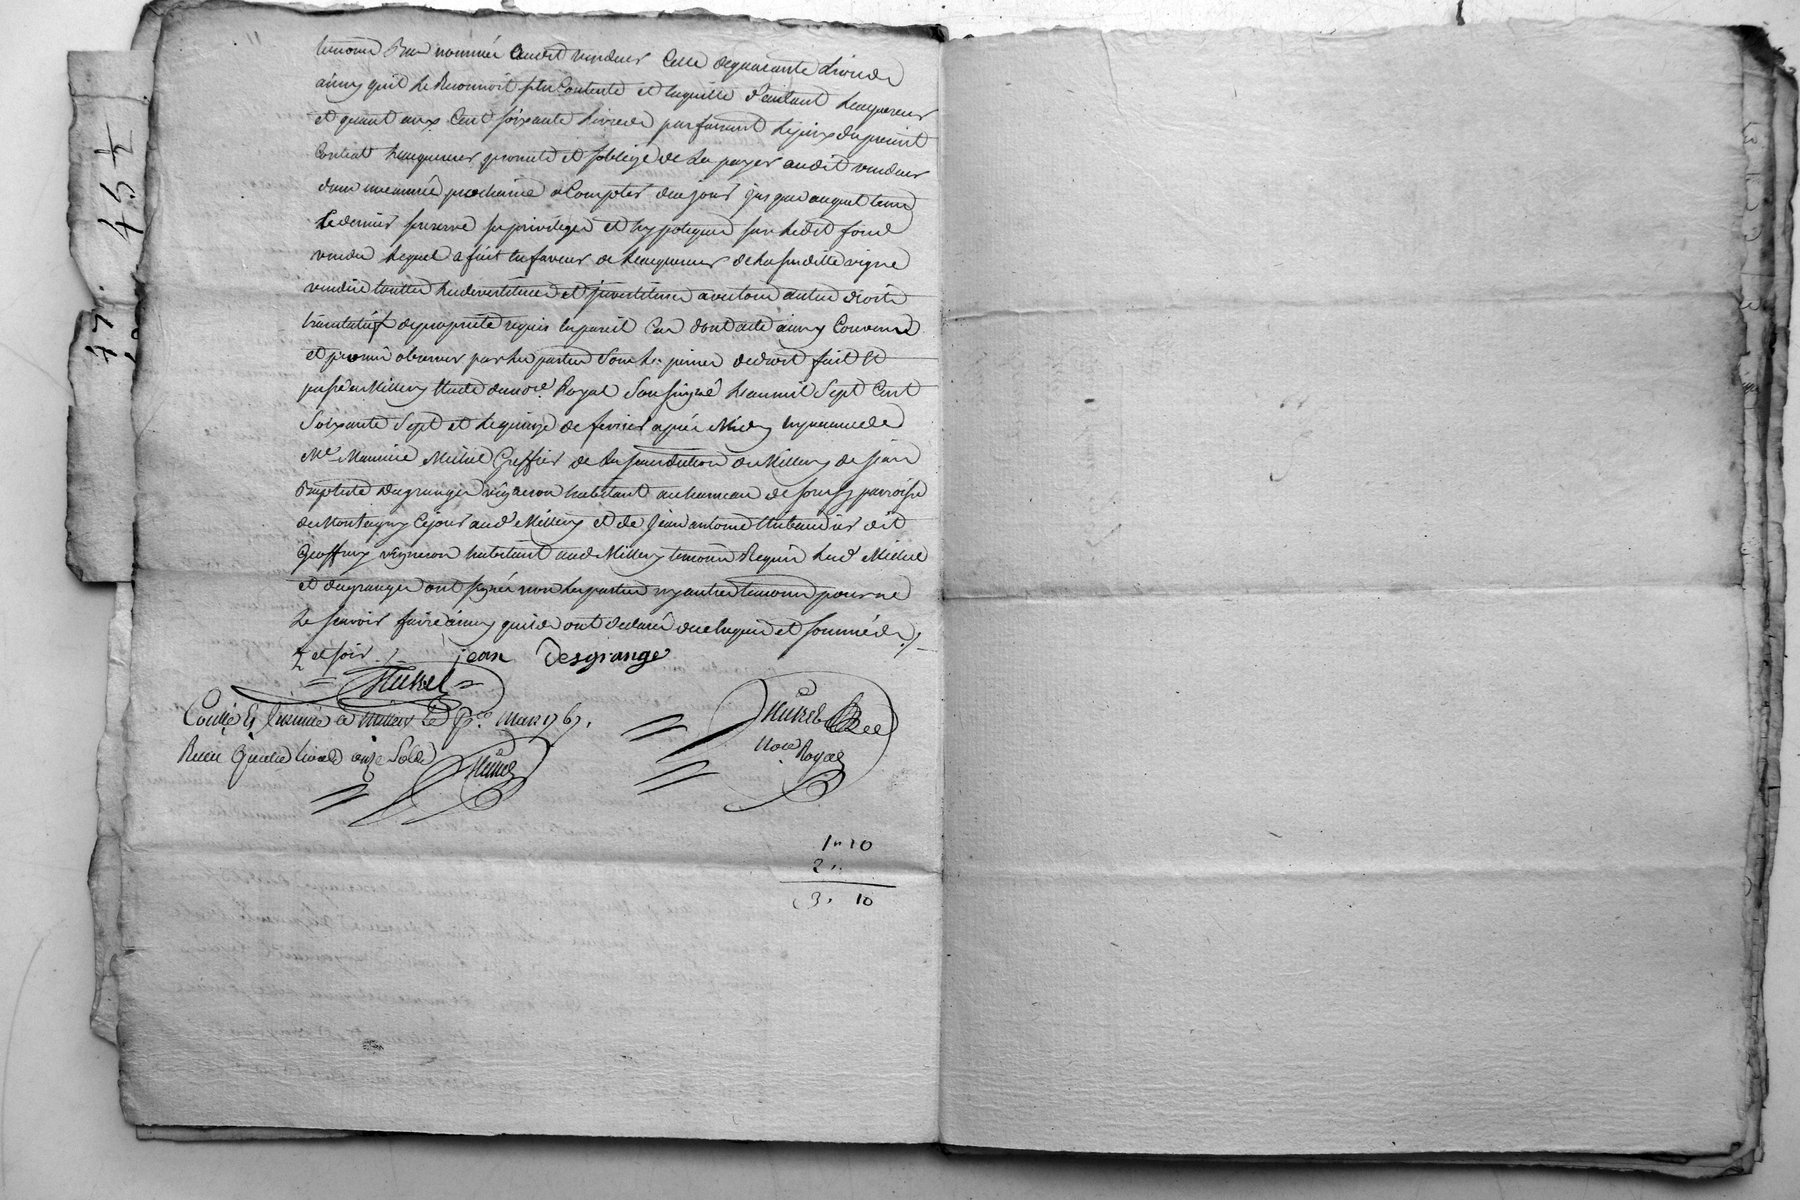 temoins Bas nommés audit vendeur Celle de quarante Livres
ainsy quil le Reconnoit sen Contente et en quitte d'autant Lacquereur
et quant aux Cent soixante Livres parfaisant le prix du present
Contrat Lacquereur promet et soblige de les payer audit vendeur
dans une année prochaine a Compter de ce jour jusques auquel tems
Ce dernier se reserve ses privileges et hypoteques sur ledit fond
vendu Lequel a fait en faveur de Lacquereur de la susditte vigne
vendüe touttes les devestitures et jnvestitures avec tous autres droits
translatifs de propriété requis en pareil Cas dont acte ainsy Convenu
et promis observer par les parties sous les peines de droit fait et
passé a Millery Etude du nore. Royal Soussigné Lan mil Sept Cent
Soixante Sept et le quinze de fevrier après Midy en presence de
Me. Maurice Michel Greffier de la jurisdiction de Millery de jean
Baptiste Degranges vigneron habitant au hameau de Sourzy parroisse
de Montagny Cejour aud. Millery et de jean antoine dit
Geoffray vigneron habitant aud. Millery temoins Requis Led. Michel
et degranges ont signés non les parties ny autre temoin pour ne
Le sçavoir faire ainsy quils ont declaré de ce Enquis et sommés ./.
et soir ./. jean Desgrange
Michel
Collé & a millery le pr. Mars 1767.
Michel
Recu Quatre livres onze Sols
Michel
Nore Royal
1" 10
2".
3. 10
77. 45 1/2